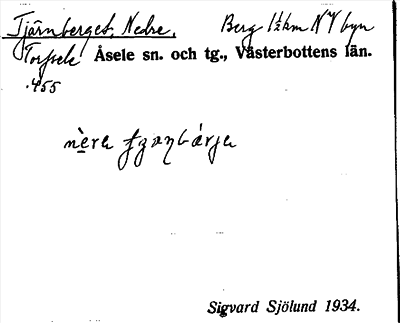 Tjärnberget, Nedre, Berg 1½ km NV byn
Torfsele Åsele sn. och tg., Västerbottens län.
455
Sigvard Sjölund 1934.